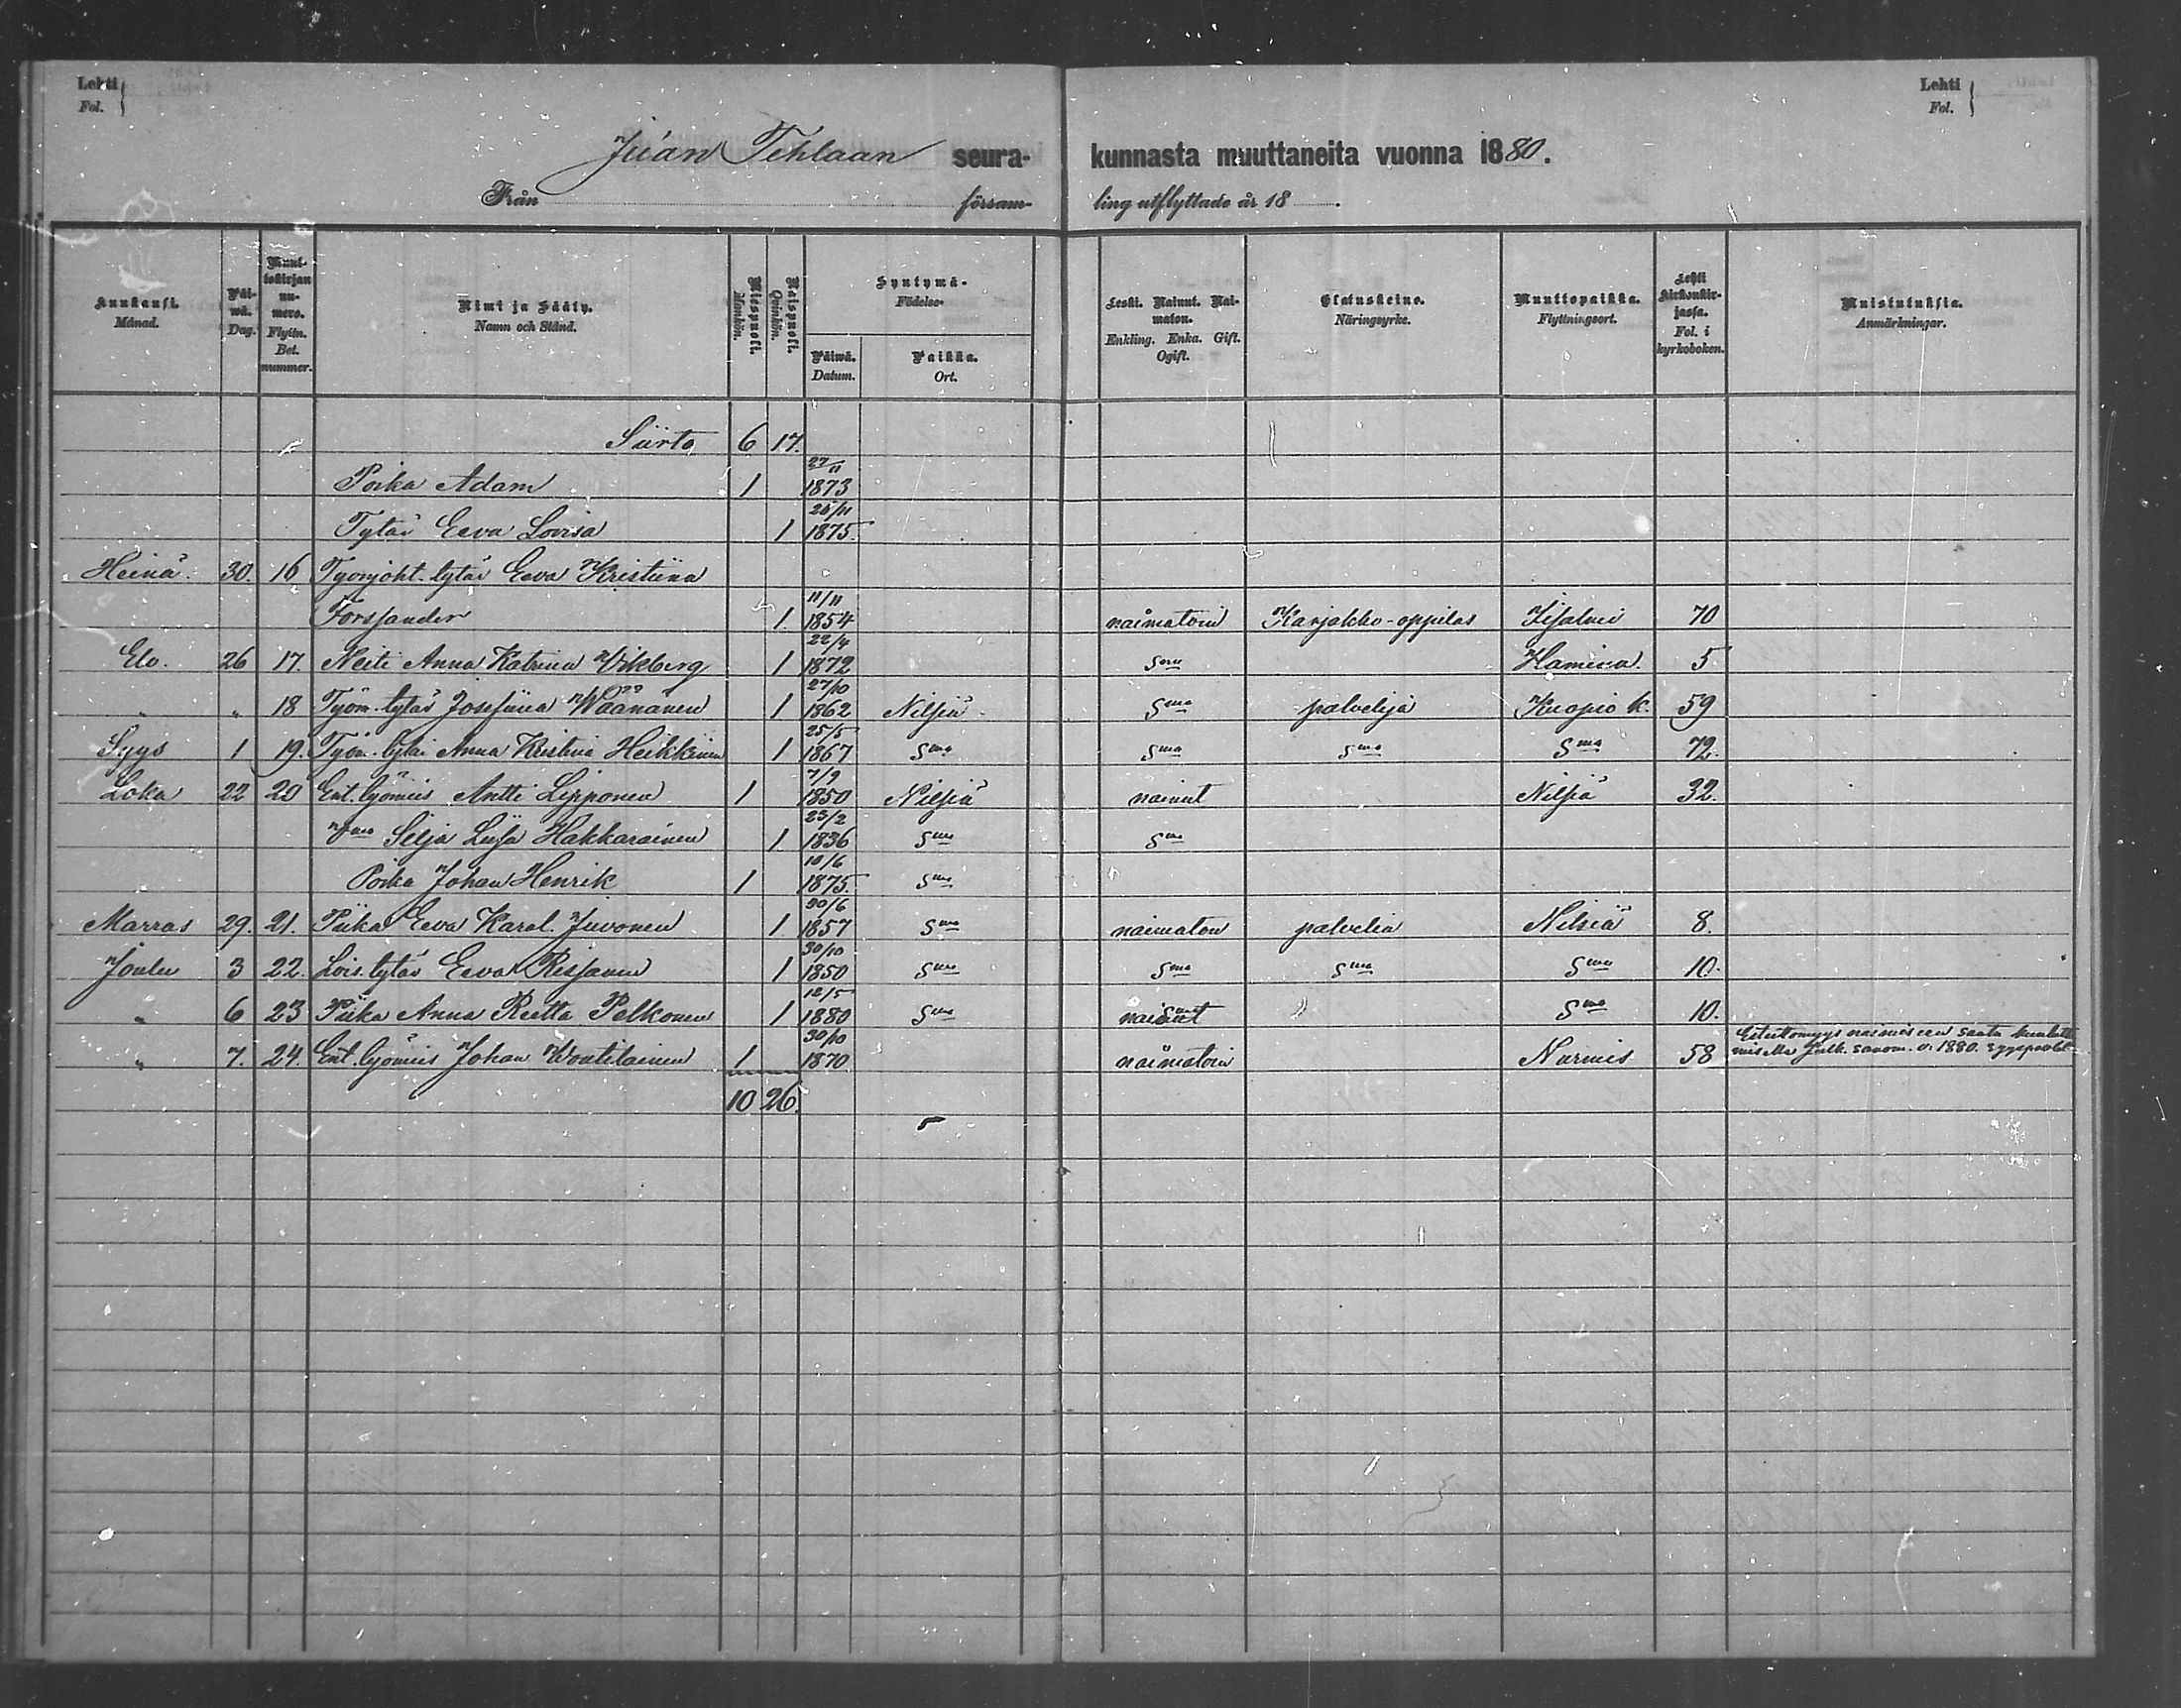 Lehti
Fol.
Lehti
Fol.
Juan Tehlaan seura- kunnasta muuttaneita vuonna 1880.
Från försam- ling utflyttade år 18 .
Kuukausi. Månad.
Päi-wä. Dag.
Muut-tokirjan nu-mero. Flyttn. Bet. nummer.
Nimi ja Sääty. Namn och Stånd.
Miespuoli. Mankön.
Naispuoli. Qvinkön.
Syntymä- Födelse-
Päiwä. Datum.
Paikka. Ort.
Leski. Nainut. Nai-maton. Enkling. Enka. Gift. Ogift.
Elatuskeino. Näringsyrke.
Muuttopaikka. Flyttningsort.
Lehti kirkonkir-jassa. Fol. i kyrkoboken.
Muistutuksia. Anmärkningar.
Siirto 6 17.
Poika Adam 1 27/11 1873
Tytär Eeva Lovisa 1 25/11 1875.
Heinä. 30. 16 Työnjoht. tytär Eeva Kristiina
Forssander 1. 11/11 1854 naimatoin Karjakko-oppilas Iisalmi 70
Elo. 26 17. Neiti Anna Katrina Wikberg 1 22/4 1872 Sma Hamina. 5
" " 18 Työm. tytär Josefiina Wäänänen 1 27/10 1862 Nilsiä Sma palvelija Kuopio k. 59
Syys 1 19. Työm. tytär Anna Kristina Heikkinen 1 25/5 1867 Sma Sma Sma Sma 72.
Loka 22 20 Ent. työmies Antti Lipponen 1 7/9 1850 Nilsiä nainut Nilsiä 32.
Silja Liisa Hakkarainen 1 23/2 1836 Sma Sma
Poika Johan Henrik 1 10/6 1875. Sma
Marras 29. 21. Piika Eeva Karol. Juvonen 1 20/6 1857 Sma naimaton palvelia Nilsiä 8.
Joulu 3 22. Lois. tytär Eeva Rissanen 1 30/10 1850 Sma Sma Sma Sma 10.
" 6 23 Piika Anna Reetta Pelkonen 1 12/5 1880 Sma nainut Sma 10.
" 7. 24. Ent. työmies Johan Woutilainen 1 30/10 1870 naimatoin Nurmes 58 Esteettömyys naimiseen saatu kuulutt
v. 1880.
10 26.